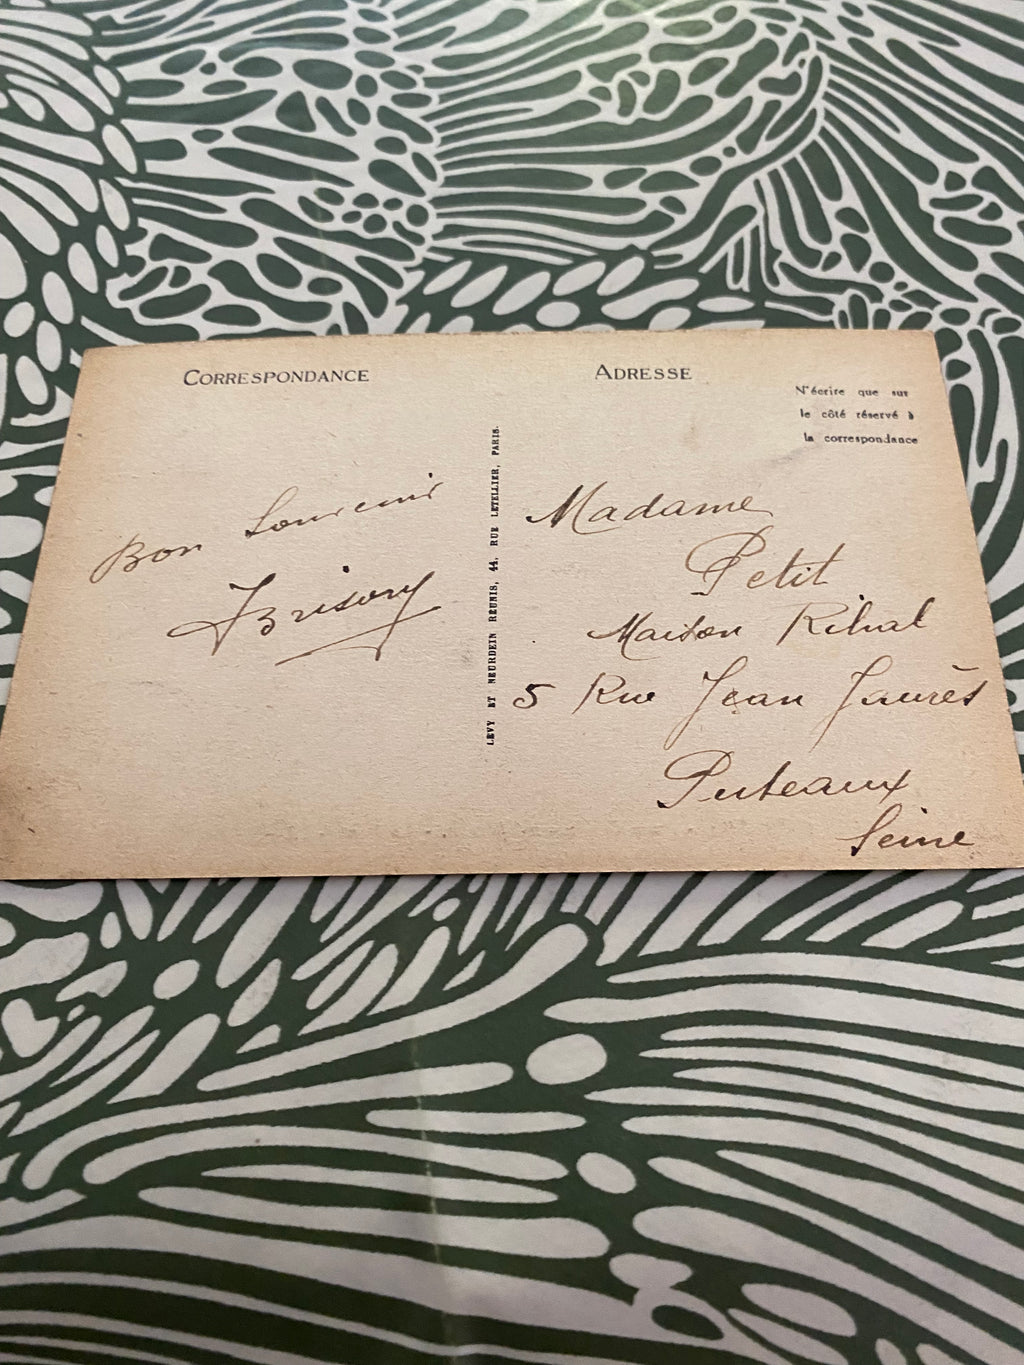 CORRESPONDANCE
Bon Souvenir
LEVY ET NEURDEIN RÉUNIS, 44, RUE LETELLIER, PARIS.
ADRESSE
N'écrire que sur
le côté réservé à
la correspondance
Madame
Petit
Maison
5 Rue Jean Jaurès
Puteaux
Seine